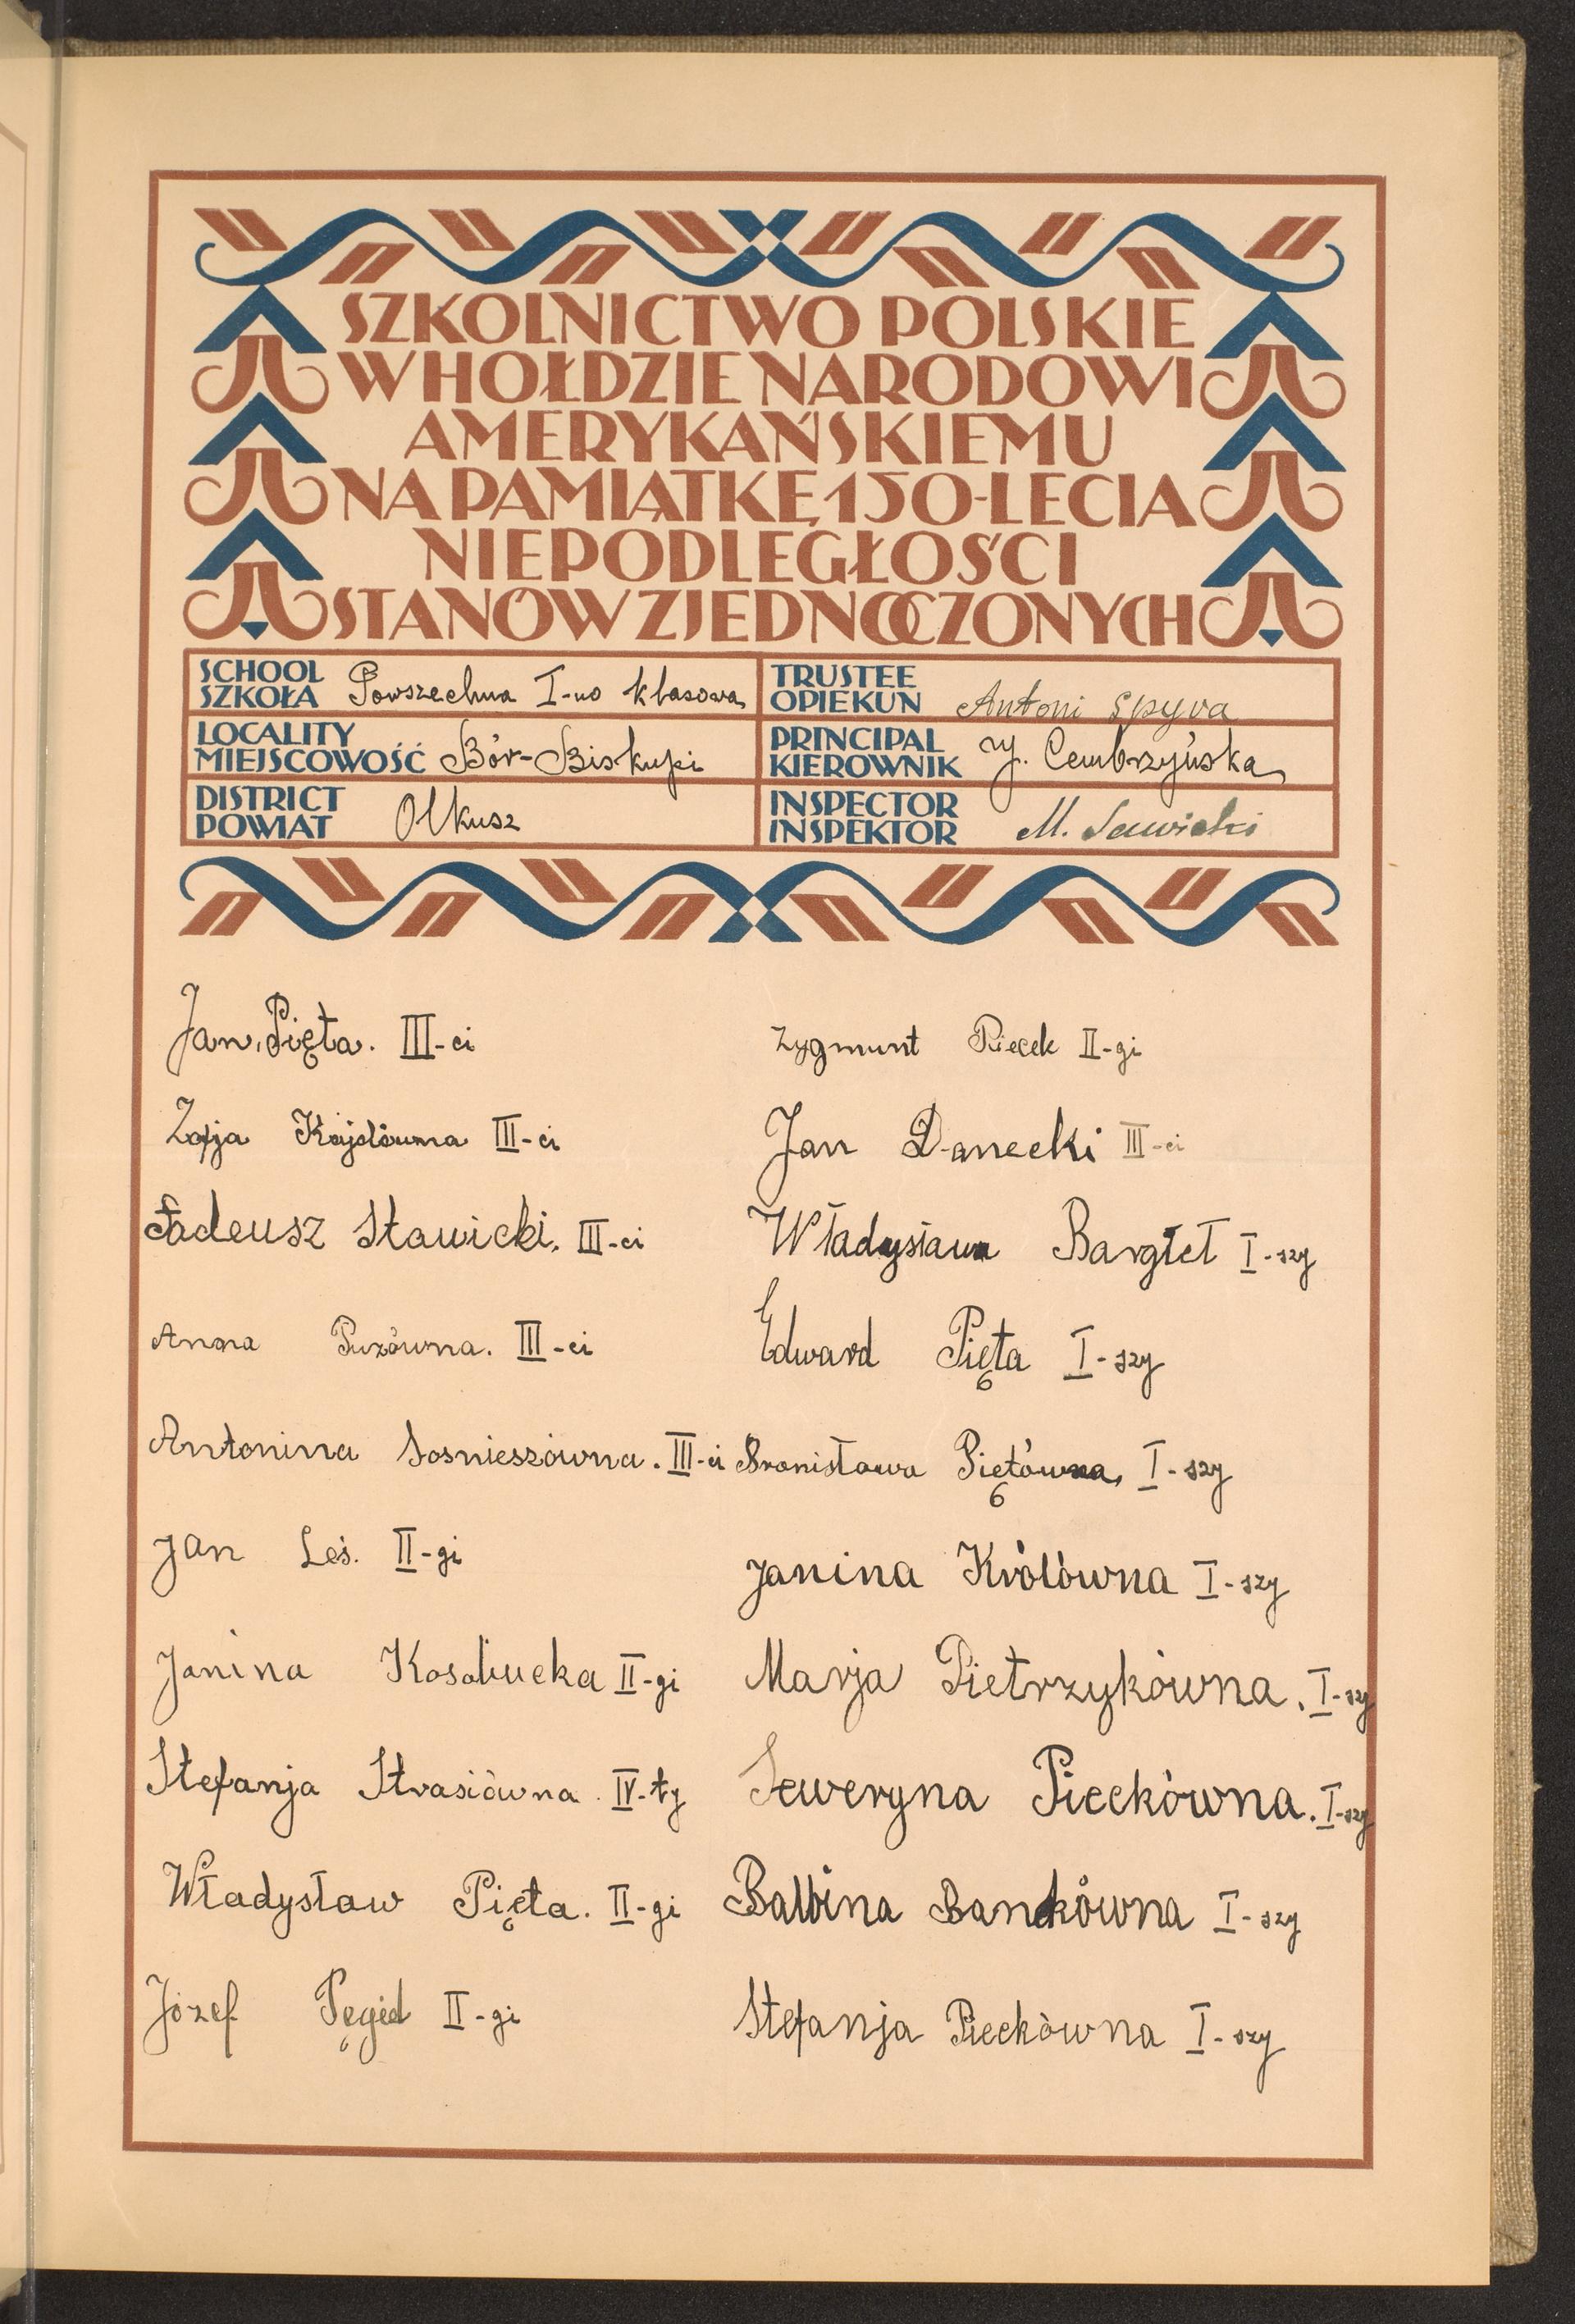 SZKOLNICTWO POLSKIE
W HOŁDZIE NARODOWI
AMERYKAŃSKIEMU
NA PAMIĄTKĘ 150-LECIA
NIEPODLEGŁOŚCI
STANÓW ZJEDNOCZONYCH
SCHOOL
SZKOŁA Powszechna I-no klasowa
LOCALITY
MIEJSCOWOŚĆ Bór-Biskupi
DISTRICT
POWIAT Olkusz
TRUSTEE
OPIEKUN Antoni Spyra
PRINCIPAL
KIEROWNIK J. Cembrzyńska
INSPECTOR
INSPEKTOR M. Sawicki
Jan Pięta. III-ci
Zofja Kajdówna III-ci
Tadeusz Stawicki. III-ci
Anna Puzówna. III-ci
Antonina Sosnieszówna. III-ci
Jan Leś. II-gi
Janina Kosobucka II-gi
Stefanja Strasiówna. IV-ty
Władysław Pięta. II-gi
Józef Pęgiel II-gi
Zygmunt Piecek II-gi
Jan Danecki III-ci
Władysława Bargieł I-szy
Edward Pięta I-szy
Bronisława Piętówna, I-szy
Janina Królówna I-szy
Marja Pietrzykówna. I-szy
Seweryna Pieckówna. I-szy
Balbina Bankówna I-szy
Stefanja Pieckówna I-szy